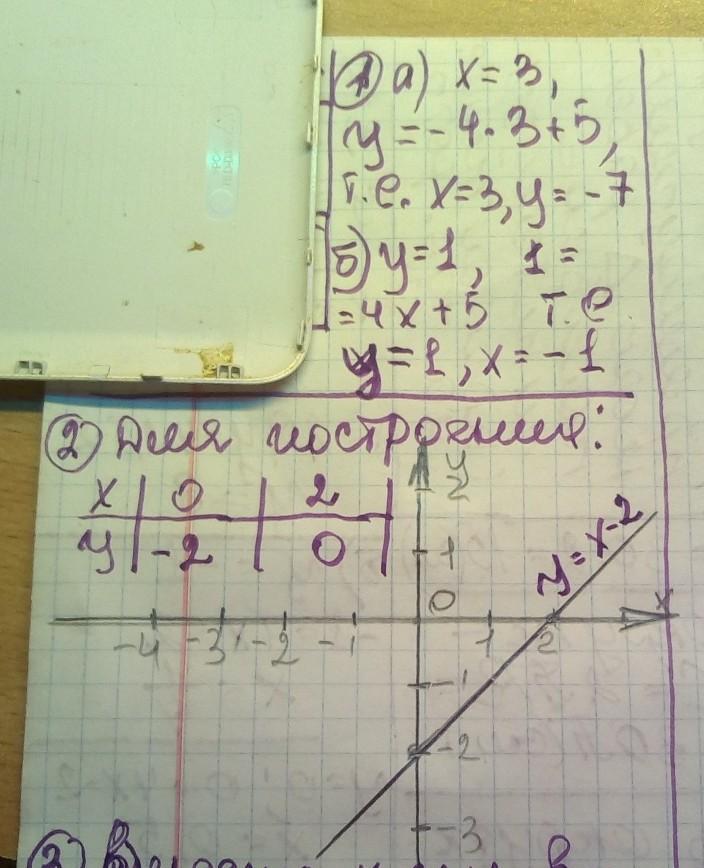 1 а) x = 3,
y = -4·3+5,
т.е. x=3, y = -7
б) y=1, 1=
=4x+5 т.е
y=1, x=-1
2 Для построения:
x | 0 | 2
y | -2 | 0
y
2
1
0
x
-4 -3 -2 -1 1 2
-1
-2
-3
y=x-2